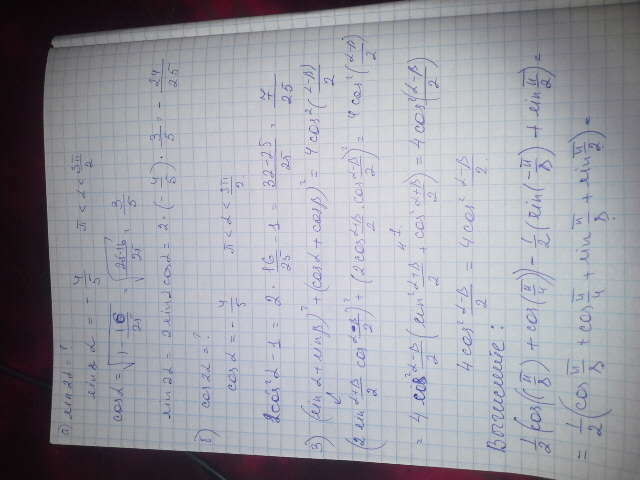 а) sin 2α = ?
sin α = - 4/5    π < α < 3π/2
cos α = √(1 - 16/25) = √((25-16)/25) = 3/5
sin 2α = 2 sin α cos α = 2 · (-4/5) · 3/5 = - 24/25
б) cos 2α = ?
cos α = - 4/5    π < α < 3π/2
2cos² α - 1 = 2 · 16/25 - 1 = (32-25)/25 = 7/25
3) (sin α + sin β)² + (cos α + cos β)² = 4 cos² ((α-β)/2)
(2 sin (α+β)/2 cos (α-β)/2)² + (2 cos (α+β)/2 · cos (α-β)/2)² = 4 cos² ((α-β)/2)
= 4 cos² (α-β)/2 (sin² (α+β)/2 + cos² (α+β)/2) = 4 cos² ((α-β)/2)
4 cos² (α-β)/2 = 4 cos² (α-β)/2
Вычислите:
1/2 (cos(π/8) + cos(π/4)) - 1/2 (sin(-π/8) + sin π/2) =
= 1/2 (cos π/8 + cos π/4 + sin π/8 + sin π/2) =